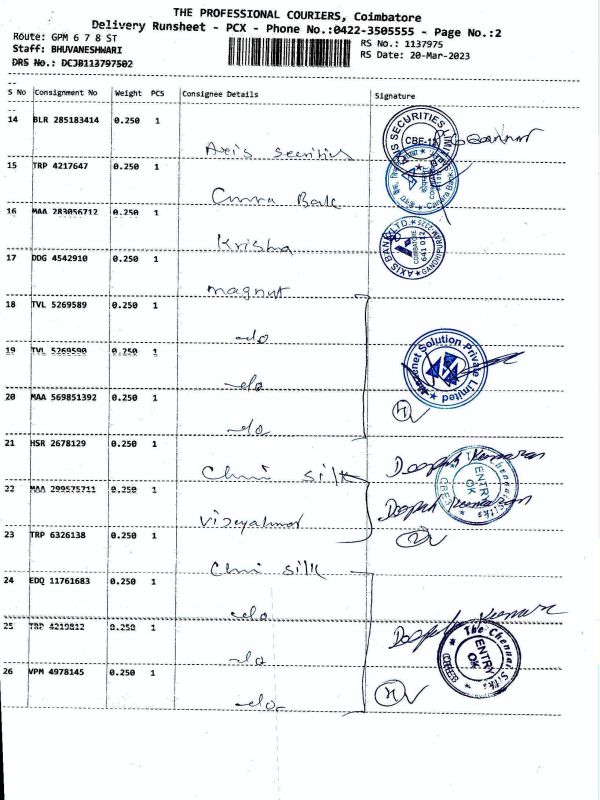 THE PROFESSIONAL COURIERS, Coimbatore
Delivery Runsheet - PCX - Phone No.:0422-3505555 - Page No.:2
Route: GPM 6 7 8 ST
RS No.: 1137975
Staff: BHUVANESHWARI
RS Date: 20-Mar-2023
DRS No.: DCJB113797502
S No Consignment No Weight PCS Consignee Details Signature
14 BLR 285183414 0.250 1
Axis Securities
SECURITIES CBE-1
15 TRP 4217647 0.250 1
Canara Bank
Canara Bank
16 MAA 283056712 0.250 1
Krishna
AXIS BANK LTD. GANDHIPURAM COIMBATORE 641 012
17 DDG 4542910 0.250 1
magnut
18 TVL 5269589 0.250 1
do
19 TVL 5269590 0.250 1
do
Solution Private Limited
20 MAA 569851392 0.250 1
do
4
21 HSR 2678129 0.250 1
Chni silk
Deepak Kumaran
22 MAA 299575711 0.250 1
The Chennai Silks ENTRY OK CBE
Deepak Kumaran
23 TRP 6326138 0.250 1
Chni silk
2
24 EDQ 11761683 0.250 1
do
Deepak Kumaran
25 TRP 4219812 0.250 1
do
The Chennai Silks ENTRY OK
26 VPM 4978145 0.250 1
do
4